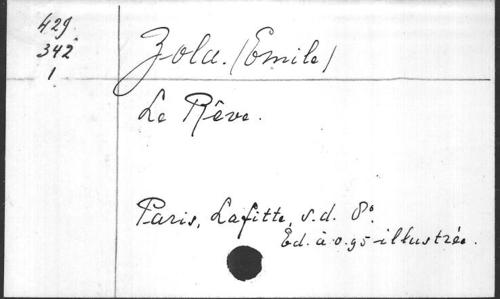 429.
342
1
Zola. (Emile)
Le Rêve.
Paris, Lafitte, s.d. 8°.
Ed. à 0.95 illustrée.